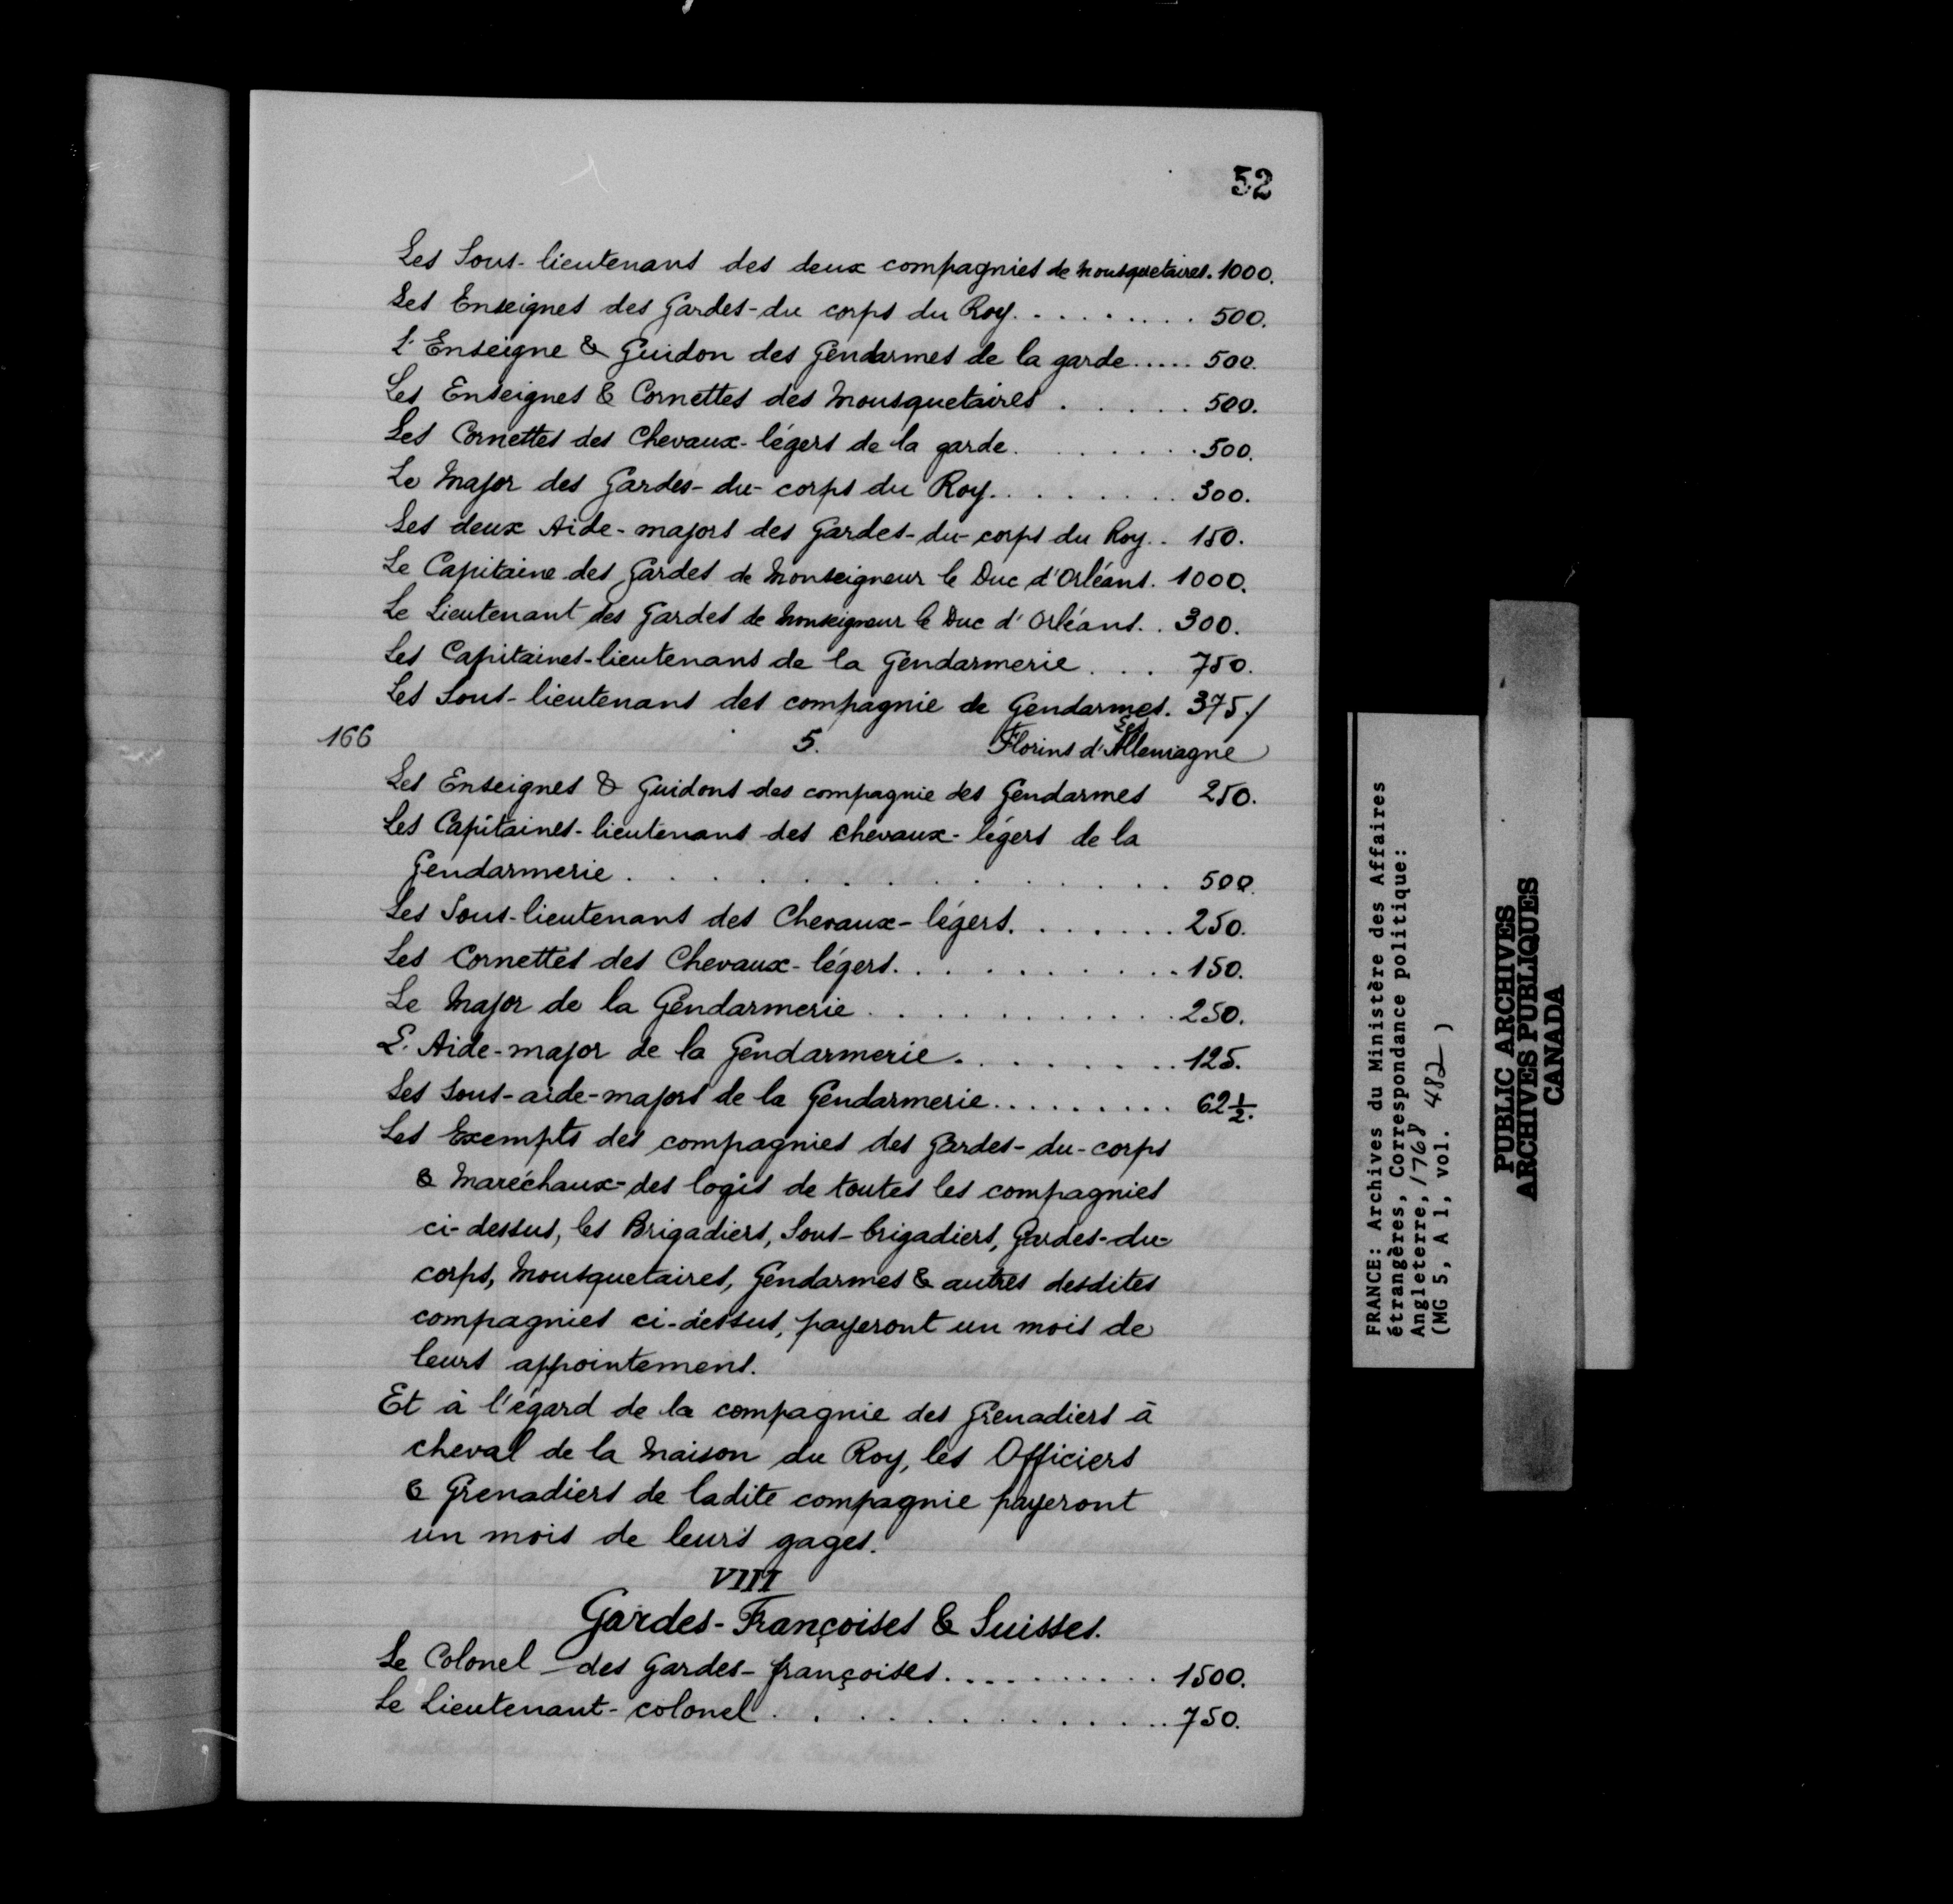 52
Les Sous-lieutenans des deux compagnies de Mousquetaires. 1000.
Les Enseignes des Gardes-du corps du Roy. . . . . . . . . . 500.
L'Enseigne & Guidon des Gendarmes de la garde..... 500.
Les Enseignes & Cornettes des Mousquetaires . . . . . . 500.
Les Cornettes des Chevaux-légers de la garde. . . . . . . 500.
Le Major des Gardes-du-corps du Roy. . . . . . . . 300.
Les deux Aide-majors des Gardes-du-corps du Roy. . 150.
Le Capitaine des Gardes de Monseigneur le Duc d'Orléans. 1000.
Le Lieutenant des Gardes de Monseigneur le Duc d'Orléans. . 300.
Les Capitaines-lieutenans de la Gendarmerie . . . . 750.
Les Sous-lieutenans des compagnie de Gendarmes. 375./
166 5. Florins d'Allemagne
Les Enseignes & Guidons des compagnie des Gendarmes 250.
Les Capitaines-lieutenans des Chevaux-légers de la
Gendarmerie . . . . . . . . . . . . . 500.
Les Sous-lieutenans des Chevaux-légers. . . . . . . . 250.
Les Cornettes des Chevaux-légers. . . . . . . . . . . 150.
Le Major de la Gendarmerie . . . . . . . . . . . 250.
L'Aide-major de la Gendarmerie. . . . . . . . . . 125.
Les Sous-aide-majors de la Gendarmerie. . . . . . . . . . 62 1/2.
Les Exempts des compagnies des Gardes-du-corps
& Maréchaux-des logis de toutes les compagnies
ci-dessus, les Brigadiers, Sous-brigadiers, Gardes-du-
corps, Mousquetaires, Gendarmes & autres desdites
compagnies ci-dessus, payeront un mois de
leurs appointemens.
Et à l'égard de la compagnie des Grenadiers à
cheval de la Maison du Roy, les Officiers
& Grenadiers de ladite compagnie payeront
un mois de leurs gages.
VIII
Gardes-Françoises & Suisses.
Le Colonel des Gardes-françoises. . . . . . . . . . . 1500.
Le Lieutenant-colonel . . . . . . . . . . . . 750.
FRANCE: Archives du Ministère des Affaires
étrangères, Correspondance politique:
Angleterre, 1768
(MG 5, A 1, vol. 482 )
PUBLIC ARCHIVES
ARCHIVES PUBLIQUES
CANADA